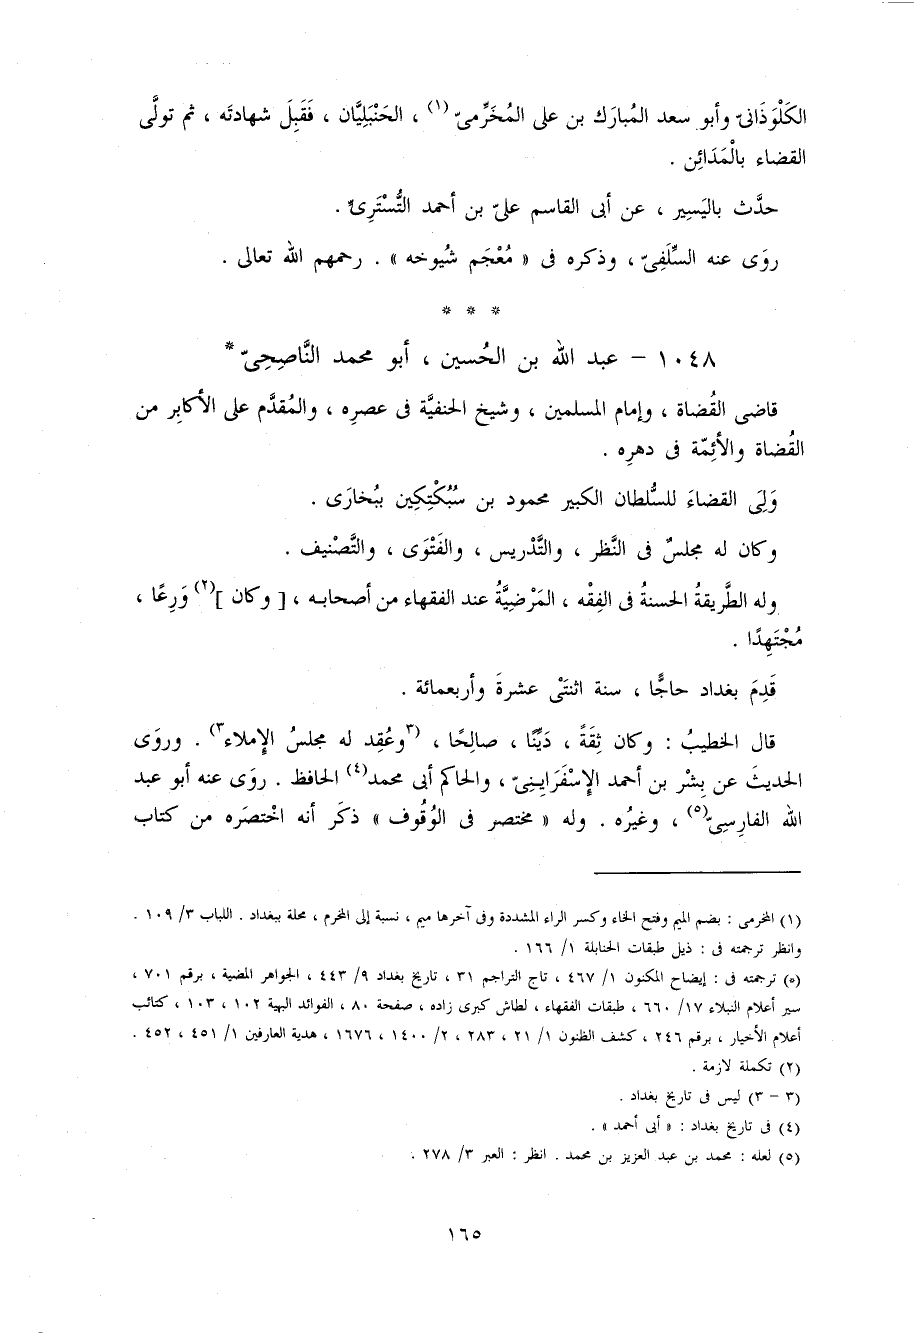 الكَلْوَذَانىّ وأبو سعد المُبارَك بن على المُخَرِّمىّ(١) ، الحَنْبَلِيَّان ، فَقَبِلَ شهادتَه ، ثم تولَّى
القضاء بالْمَدَائِن .
حدَّث باليَسِير ، عن أبى القاسم علىّ بن أحمد التُّسْتَرِىّ .
روَى عنه السِّلَفِىّ ، وذكره فى « مُعْجَم شيُوخه » . رحمهم الله تعالى .
* * *
١٠٤٨ – عبد الله بن الحُسين ، أبو محمد النَّاصِحِىّ *
قاضى القُضاة ، وإمام المسلمين ، وشيخ الحنفيَّة فى عصرِه ، والمُقدَّم على الأكابِر من
القُضاة والأئِمّة فى دهرِه .
وَلِىَ القضاءَ للسُّلطان الكبير محمود بن سُبُكْتِكِين ببُخارَى .
وكان له مجلسٌ فى النَّظر ، والتَّدْريس ، والفَتْوَى ، والتَّصْنيف .
وله الطَّريقةُ الحسنةُ فى الفِقْه ، المَرْضيَّةُ عند الفقهاء من أصحابه ، [ وكان ](٢) وَرِعًا ،
مُجْتَهِدًا .
قَدِمَ بغداد حاجًّا ، سنة اثنتَىْ عشرةَ وأربعمائة .
قال الخطيبُ : وكان ثِقَةً ، دَيِّنًا ، صالِحًا ، (٣وعُقِد له مجلسُ الإملاء٣) . وروَى
الحديثَ عن بِشْر بن أحمد الإسْفَرَايِنِىّ ، والحاكم أبى محمد(٤) الحافظ . روَى عنه أبو عبد
الله الفارِسِىّ(٥) ، وغيرُه . وله « مختصر فى الوُقُوف » ذكَر أنه اخْتصَره من كتاب
(١) المخرمى : بضم الميم وفتح الخاء وكسر الراء المشددة وفى آخرها ميم ، نسبة إلى المخرم ، محلة ببغداد . اللباب ٣/ ١٠٩ .
وانظر ترجمته فى : ذيل طبقات الحنابلة ١/ ١٦٦ .
(*) ترجمته فى : إيضاح المكنون ١/ ٤٦٧ ، تاج التراجم ٣١ ، تاريخ بغداد ٩/ ٤٤٣ ، الجواهر المضية ، برقم ٧٠١ ،
سير أعلام النبلاء ١٧/ ٦٦٠ ، طبقات الفقهاء ، لطاش كبرى زاده ، صفحة ٨٠ ، الفوائد البهية ١٠٢ ، ١٠٣ ، كتائب
أعلام الأخيار ، برقم ٢٤٦ ، كشف الظنون ١/ ٢١ ، ٢٨٣ ، ٢/ ١٤٠٠ ، ١٦٧٦ ، هدية العارفين ١/ ٤٥١ ، ٤٥٢ .
(٢) تكملة لازمة .
(٣ – ٣) ليس فى تاريخ بغداد .
(٤) فى تاريخ بغداد : « أبى أحمد » .
(٥) لعله : محمد بن عبد العزيز بن محمد . انظر : العبر ٣/ ٢٧٨ .
١٦٥